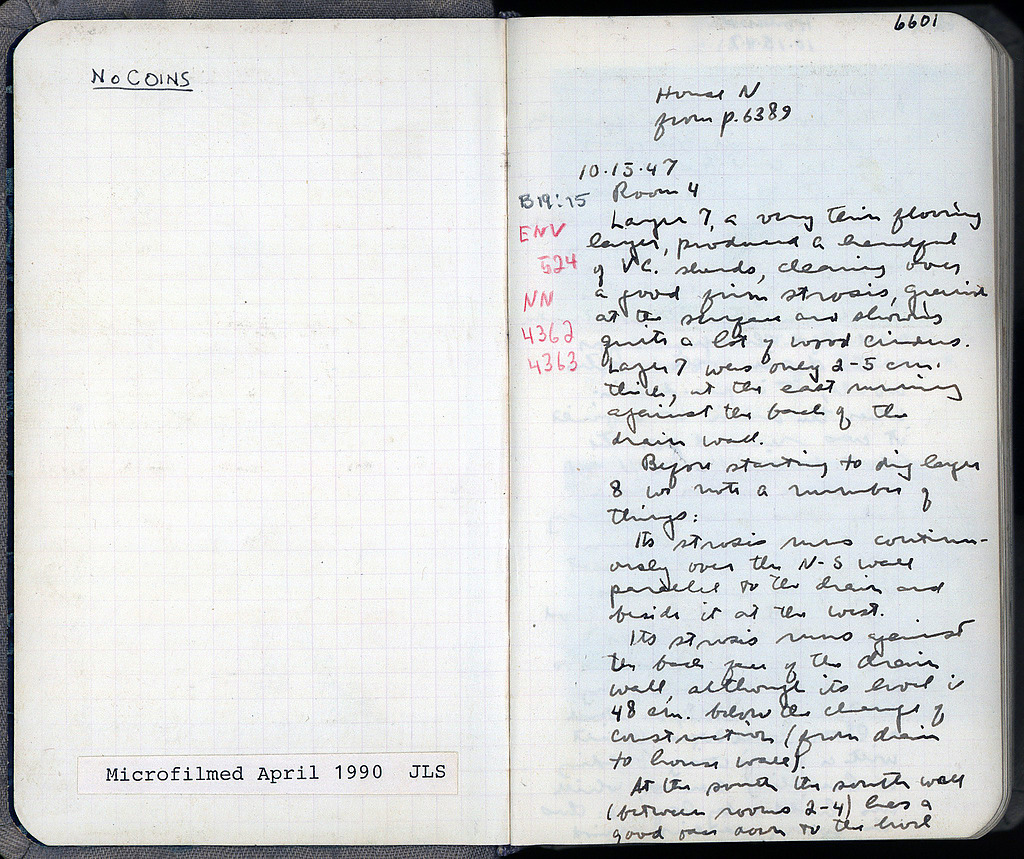 No COINS
Microfilmed April 1990 JLS
6601
House N
from p. 6389
10.15.47
B19:15 Room 4
ENV
524
NN
4362
4363
Layer 7, a very thin flooring
layer, produced a handful
of sherds, cleaning over
a good firm strosis, greenish
at the surface and showing
quite a lot of wood cinders.
Layer 7 was only 2-5 cm.
thick, at the east running
against the back of the
drain wall.
Before starting to dig layer
8 we note a number of
things:
Its strosis runs continu-
ously over the N-S wall
parallel to the drain and
beside it at the west.
Its strosis runs against
the back face of the drain
wall, although its level is
48 cm. below the change of
construction (from drain
to house wall).
At the south the south wall
(between rooms 2-4) has a
good face down to the level